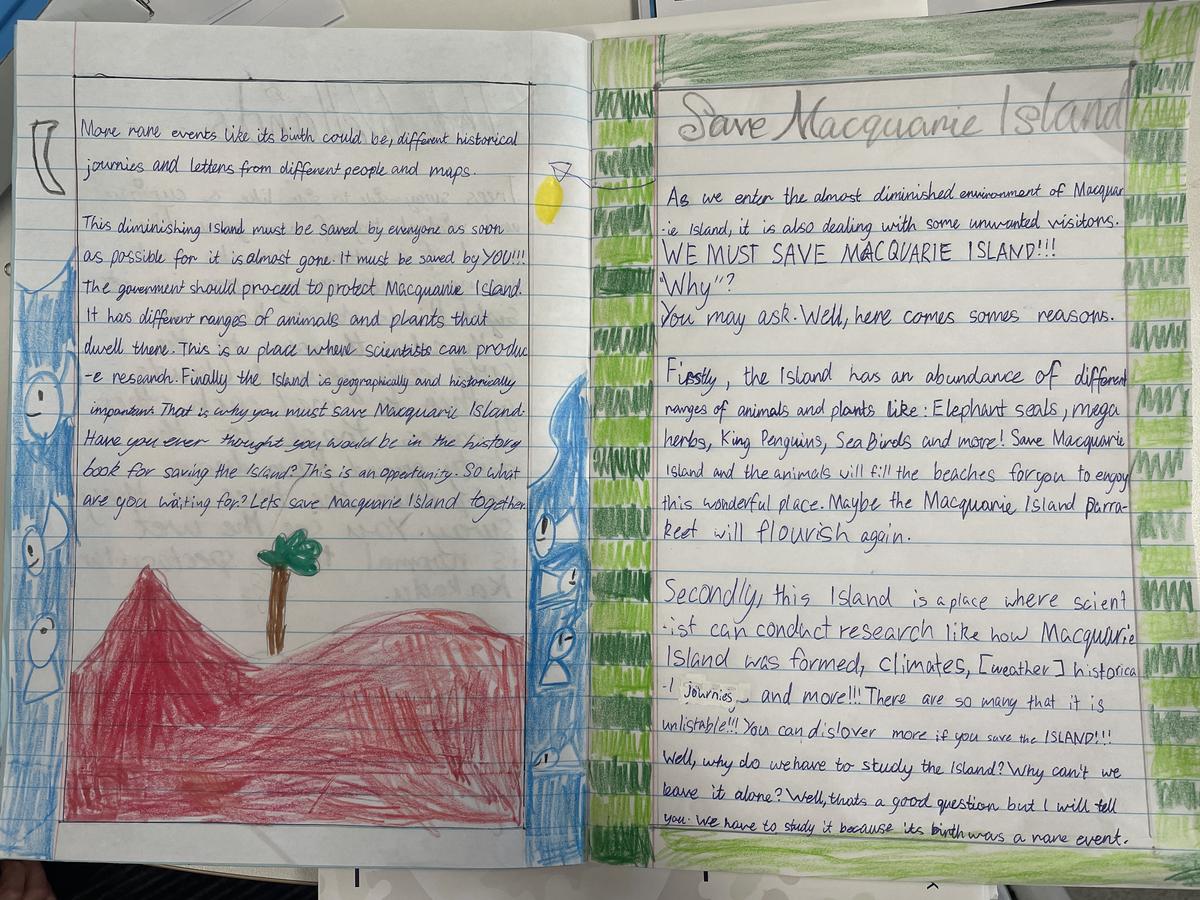 Save Macquarie Island
As we enter the almost diminished environment of Macquar
-ie Island, it is also dealing with some unwanted visitors.
WE MUST SAVE MACQUARIE ISLAND!!!
"Why"?
You may ask. Well, here comes somes reasons.
Firstly, the Island has an abundance of different
ranges of animals and plants like: Elephant seals, mega
herbs, King Penguins, Sea Birds and more! Save Macquarie
Island and the animals will fill the beaches for you to enjoy
this wonderful place. Maybe the Macquarie Island parra-
keet will flourish again.
Secondly, this Island is a place where scient
-ist can conduct research like how Macquarie
Island was formed, climates, [weather] historica
-l journies and more!!! There are so many that it is
unlistable!!! You can dislover more if you save the ISLAND!!!
Well, why do we have to study the Island? Why can't we
leave it alone? Well, thats a good question but I will tell
you. We have to study it because its birth was a rare event.
More rare events like its birth could be, different historical
journies and letters from different people and maps.
This diminishing Island must be saved by everyone as soon
as possible for it is almost gone. It must be saved by YOU!!!
The goverment should proceed to protect Macquarie Island.
It has different ranges of animals and plants that
dwell there. This is a place where scientists can produc
-e research. Finally the Island is geographically and historically
important. That is why you must save Macquarie Island.
Have you ever thought you would be in the history
book for saving the Island? This is an opportunity. So what
are you waiting for? Lets save Macquarie Island together.